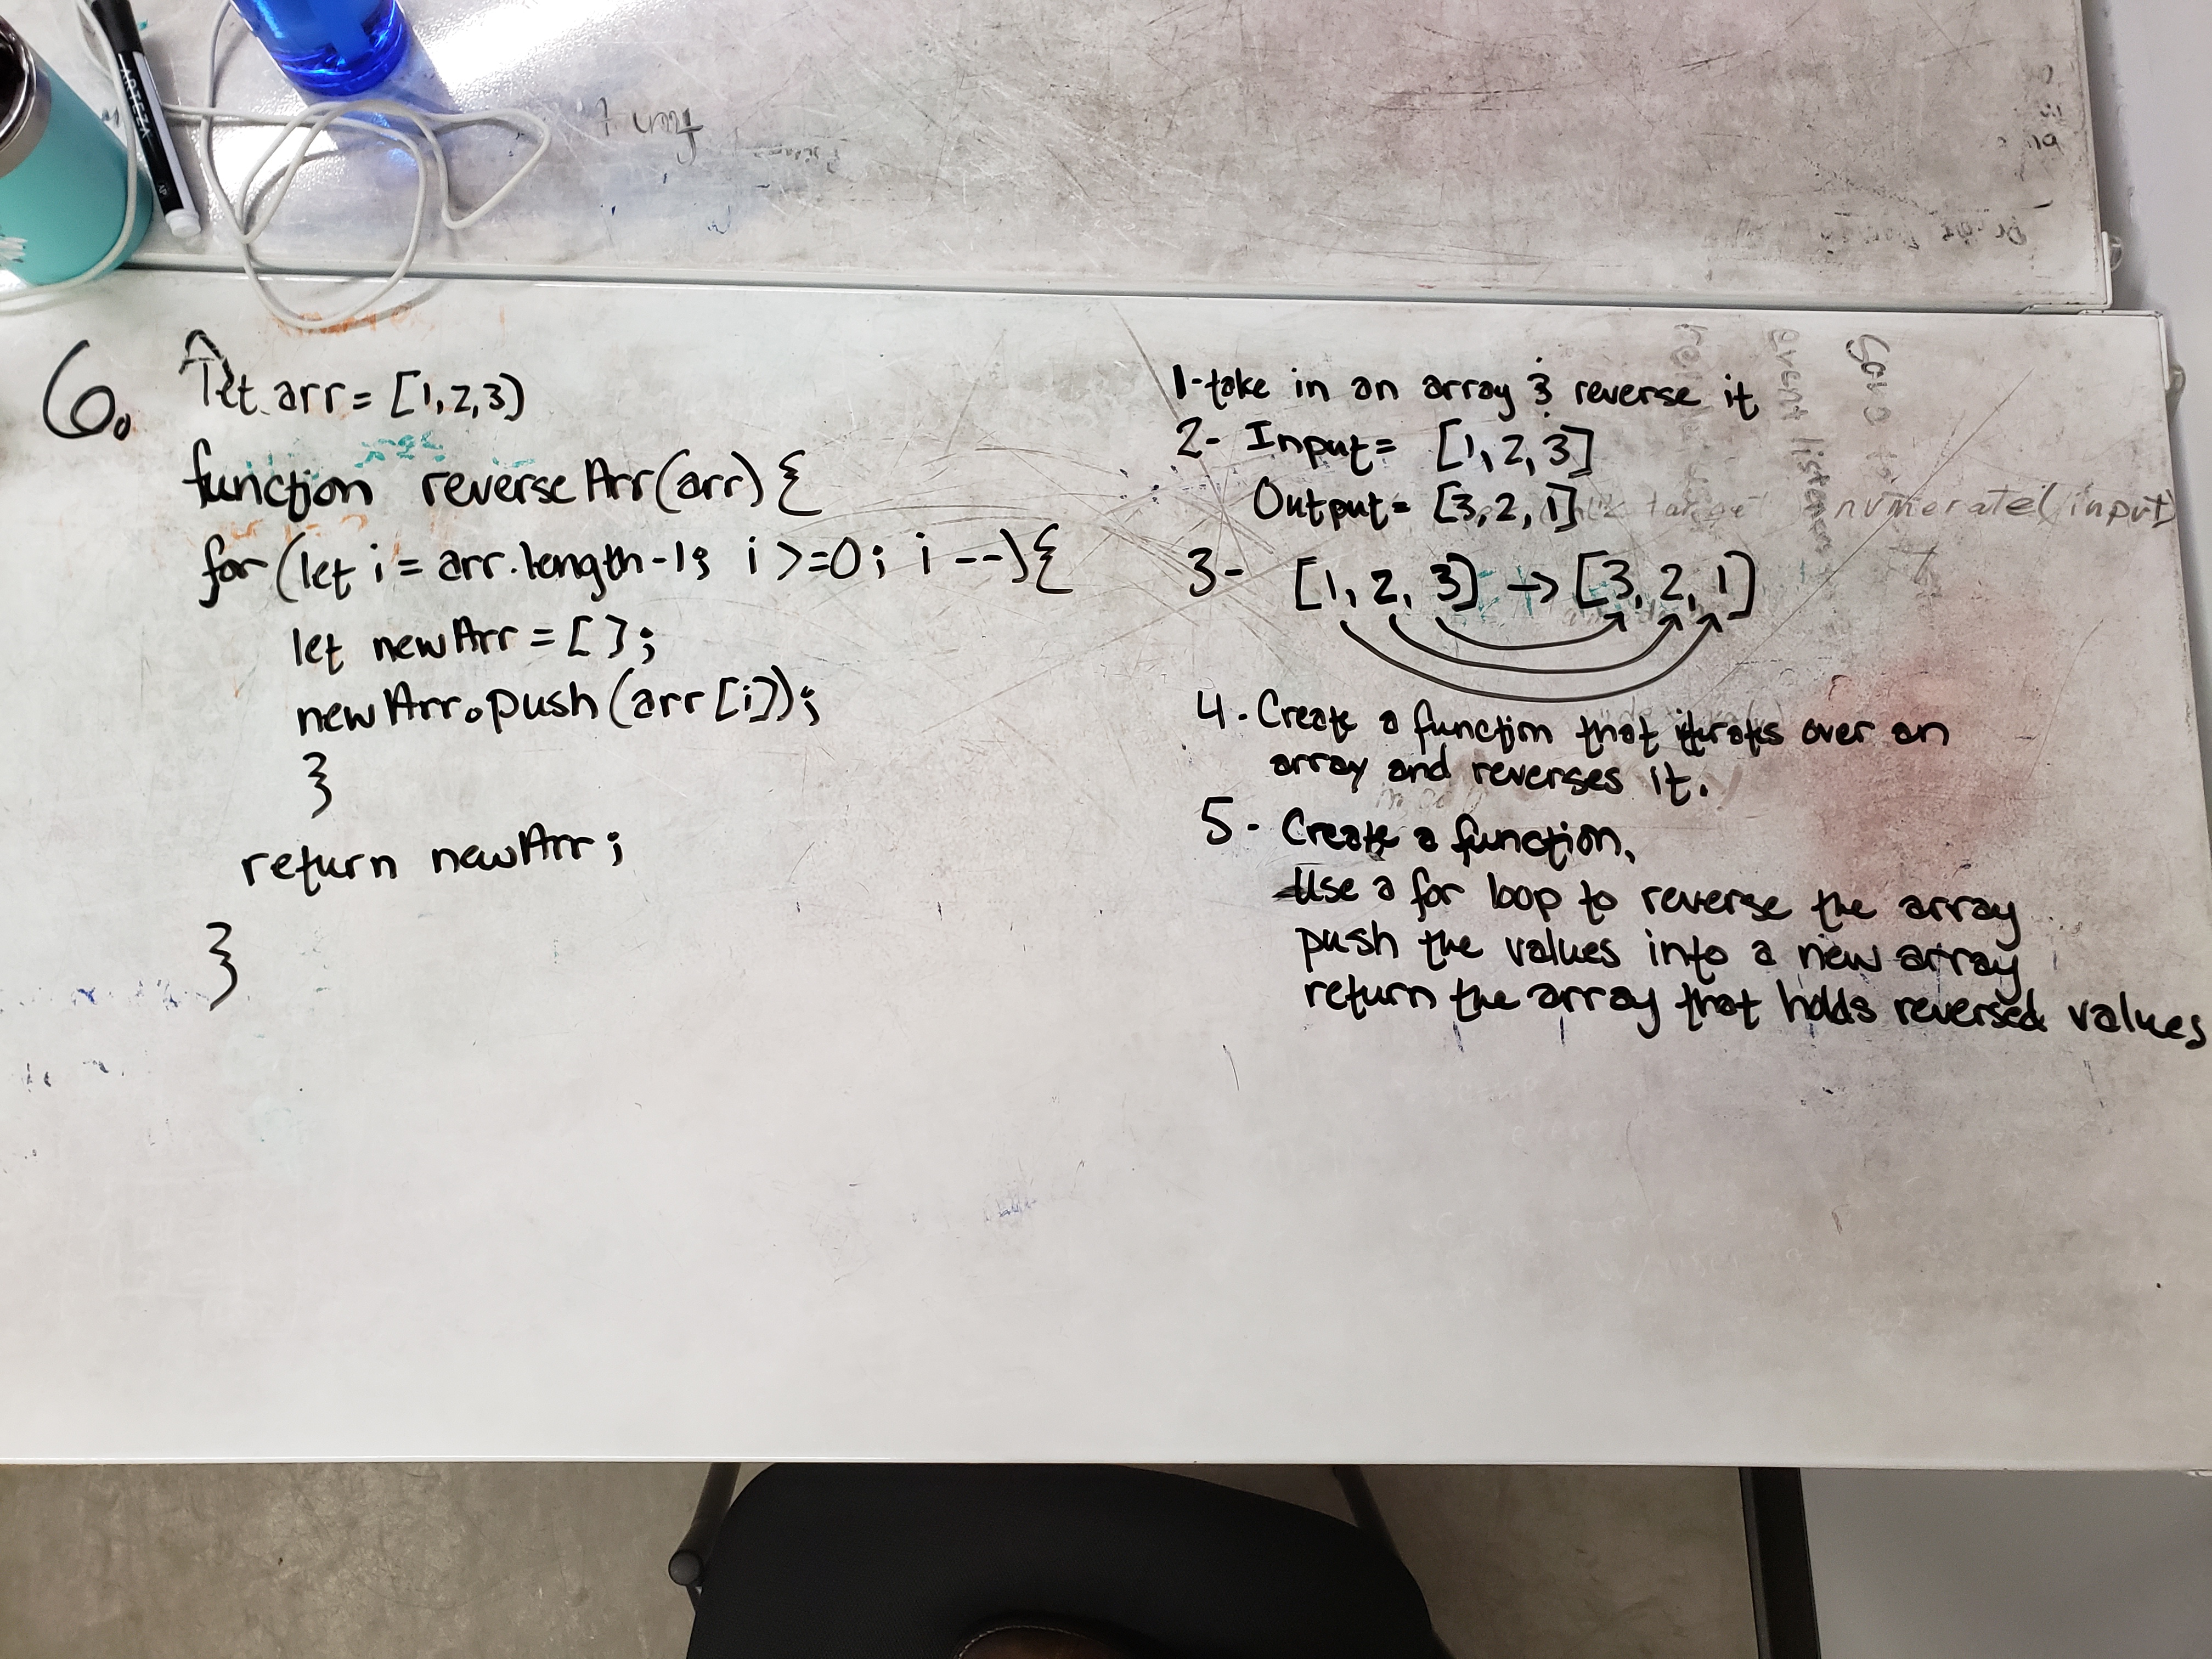 ARTEZA
6.
let arr = [1,2,3)
function reverseArr(arr){
for (let i = arr.length-1; i >=0; i --){
let newArr = [];
newArr.push(arr[i]);
}
return newArr;
}
1-take in an array & reverse it
2- Input= [1,2,3]
Output= [3,2,1]
3- [1,2,3] → [3,2,1]
4. Create a function that iterates over an
array and reverses it.
5- Create a function.
Use a for loop to reverse the array
push the values into a new array
return the array that holds reversed values
numerate(input)
target
event listener